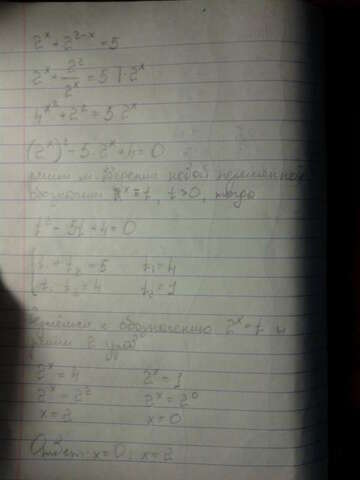 2^x + 2^(2-x) = 5
2^x + 2²/2^x = 5 | · 2^x
4^x² + 2² = 5 · 2^x
(2^x)² - 5 · 2^x + 4 = 0
введения новой переменной
2^x = t, t > 0, тогда
t² - 5t + 4 = 0
t₁ + t₂ = 5 t₁ = 4
t₁ · t₂ = 4 t₂ = 1
к обозначению 2^x = t и
2 ура
2^x = 4 2^x = 1
2^x = 2² 2^x = 2⁰
x = 2 x = 0
Ответ: x = 0; x = 2